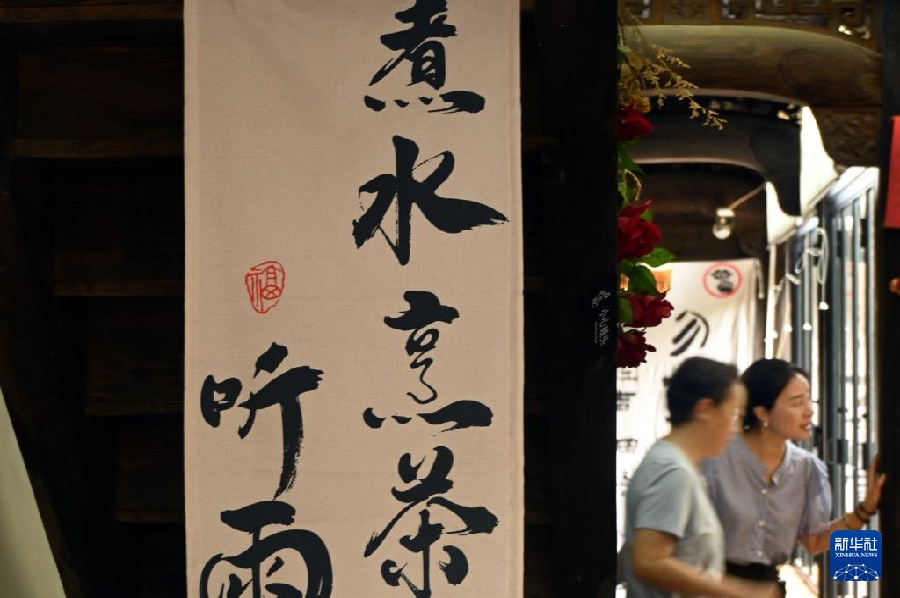 煮水烹茶
听雨
福
勿
新华社
XINHUA NEWS